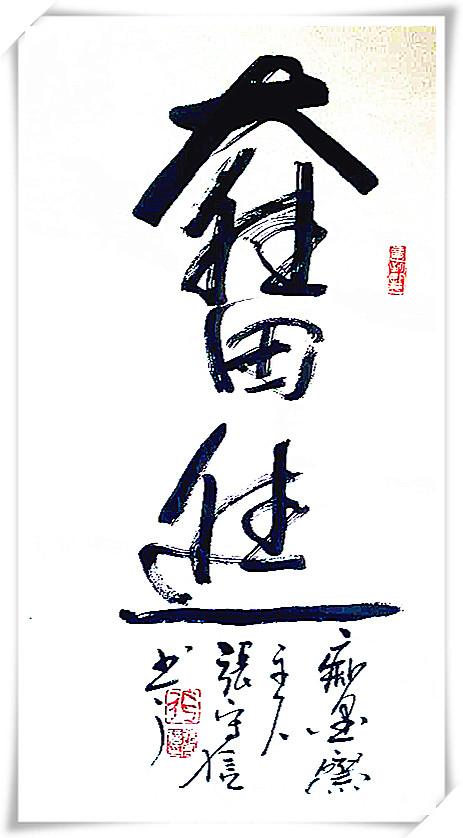 奮進
痴墨齋
主人
張守信
书